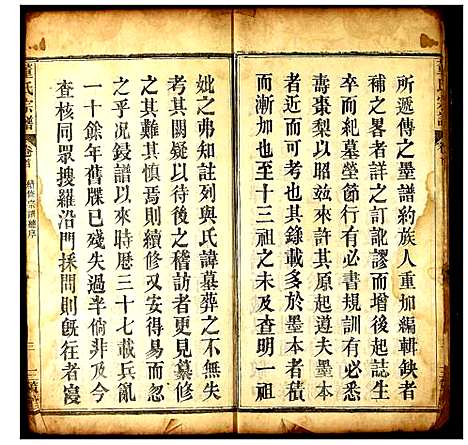 所遞傳之墨譜約族人重加編輯缺者
補之畧者詳之訂訛謬而增世次誌生
卒而紀墓塋節行有必書規訓有必悉
壽棗梨以昭玆來許其原起遵夫墨本
者從其畧也其錄載多於墨本者積
而漸加也至十三祖之查明一祖
妣之弗知註列與氏諱墓葬之不無失
考其關疑以待後之稽訪者更見纂修
之難其慎焉則續修又安得易而忽
之乎况鋟譜以來時歷三十七載兵亂
一十餘年舊牒已殘失過半倘非及今
查核同眾搜羅沿門採問則旣往者寖
董氏宗譜
卷首
續修宗譜總序
三